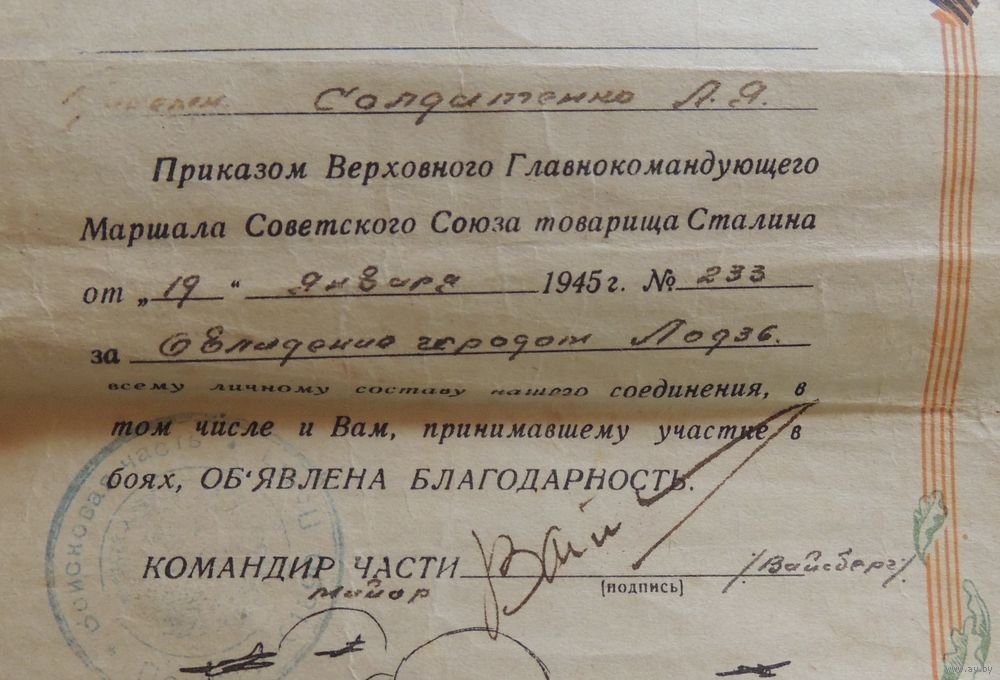 Солдатенко Л. Я.
Приказом Верховного Главнокомандующего
Маршала Советского Союза товарища Сталина
от „19“ января 1945 г. № 233
за овладение городом Лодзь.
всему личному составу нашего соединения, в
том числе и Вам, принимавшему участие в
боях, ОБ'ЯВЛЕНА БЛАГОДАРНОСТЬ.
КОМАНДИР ЧАСТИ Вайс /Вайсберг/
майор [подпись]
Войсковая часть
www.ay.by